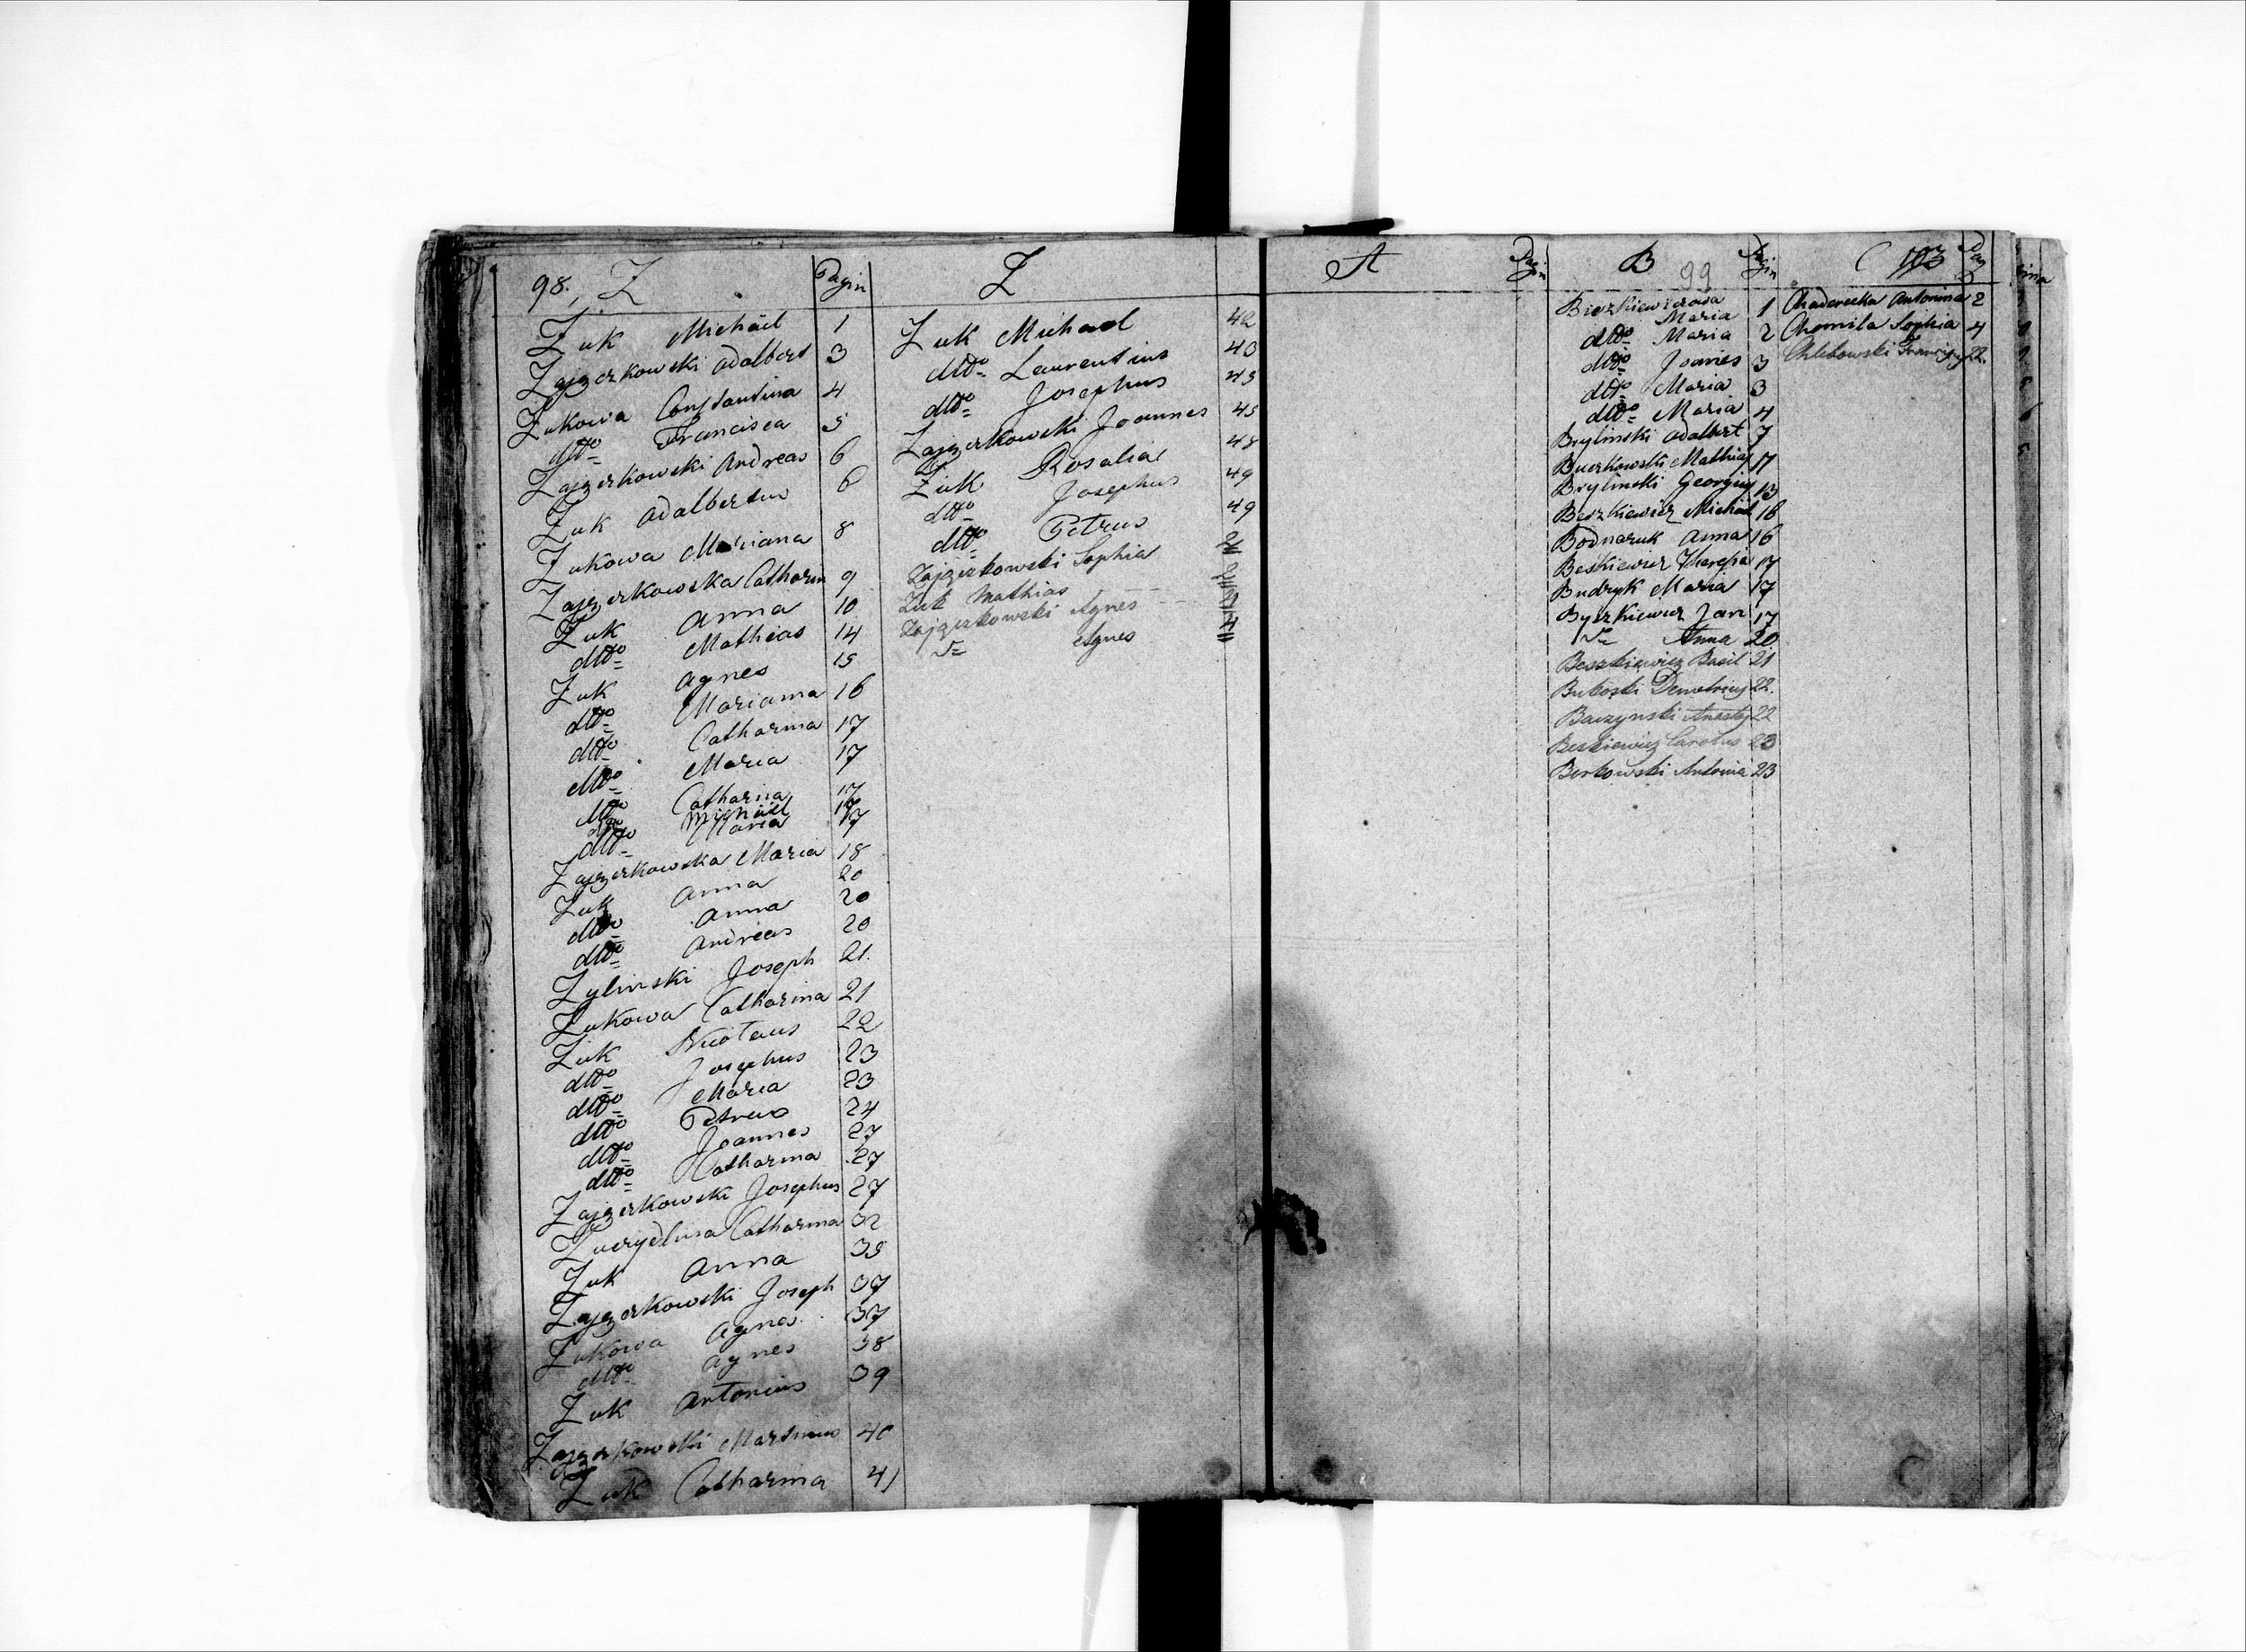 98., Z Pagin
Zuk Michäel 1
Zajzerkowski Adalbert 3
Zukowa Constantina 4
dtto Francisca 5
Zajzerkowski Andreas 6
Zuk Adalbertus 6
Zukowa Mariana 8
Zajzerkowska Catharin 9
Zuk Anna 10
dtto Mathias 14
Zuk Agnes 15
dtto Marianna 16
dtto Catharina 17
dtto Maria 17
dtto Catharina 17
dtto Michäel
dtto Maria 17
Zajzerkowska Maria 18
Zuk Anna 20
dtto Anna 20
dtto Andreas 20
Zylinski Joseph 21.
Zukowa Catharina 21
Zuk Nicolaus 22
dtto Josephus 23
dtto Maria 23
dtto Petrus 24
dtto Joannes 27
dtto Catharina 27
Zajzerkowski Josephus 27
Catharina 32
Zuk Anna 35
Zajzerkowski Joseph 37
Zukowa Agnes 37
dtto Agnes 38
Zuk Antonius 39
Zajzerkowski Martinus 40
Zuk Catharina 41
Z
Zuk Michael 42
dtto Laurentius 43
dtto Josephus 45
Zajzerkowski Joannes 45
Zuk Rosalia 48
dtto Josephus 49
dtto Petrus 49
Zajączkowski Sophia
Zuk Mathias
Zajączkowski Agnes
Agnes
A Pagin
B 99 Pagin
Bieszkiewiczowa
Maria 1
dtto Maria 2
dtto Joanes 3
dtto Maria 3
dtto Maria 4
Brylinski Adalbert 7
Buczkowski Mathias 17
Brylinski Georgius 13
Beszkiewicz Michael 16
Bodnaruk Anna 16
Beskiewicz Theresia 17
Budryk Maria 17
Byszkiewicz Jan 17
Anna 20
Beszkiewicz Basil 21
Bukoski Demetrius 22.
Baczynski 22
Beskiewicz Carolus 23
Berkowski Antonia 23
C 103 Pag
Antonina 2
Chomila Sophia 4
Chlebowski 22.